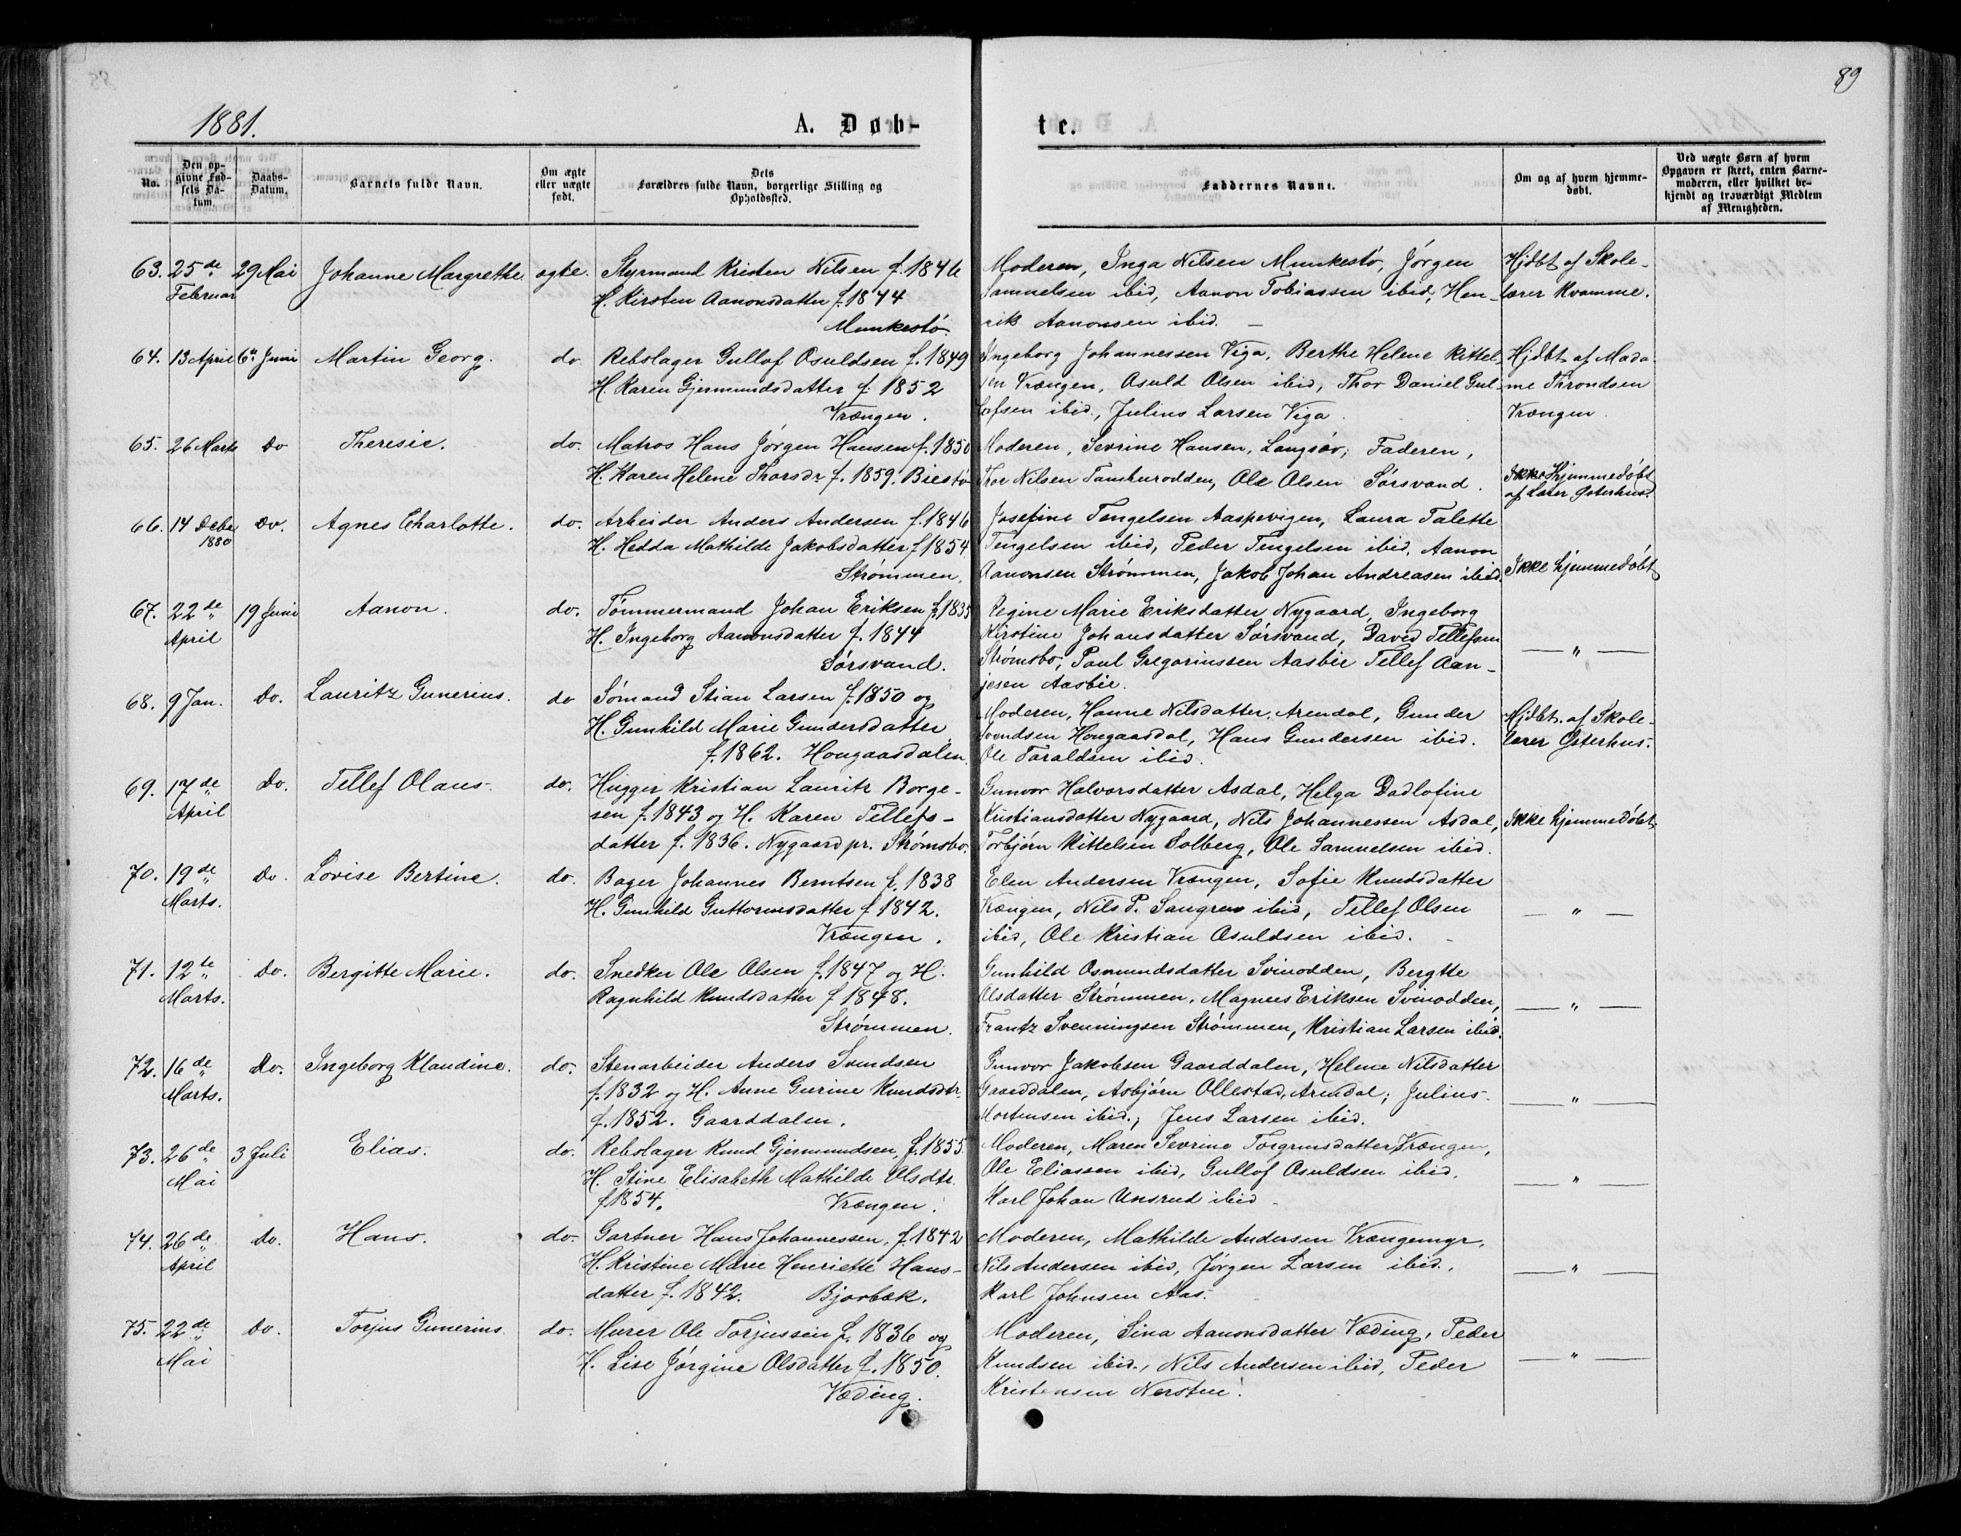 89
1881.
A. Døb-
te.
No.
Den opgivne Fødsels Datum.
Daabs-Datum.
Barnets fulde Navn.
Om ægte eller uægte født.
Dets Forældres fulde Navn, borgerlige Stilling og Opholdssted.
Faddernes Navne.
Om og af hvem hjemmedøbt.
Ved uægte Børn af hvem Opgaven er skeet, enten Barnemoderen, eller hvilket bekjendt og troværdigt Medlem af Menigheden.
63. 25de Februar 29 Mai Johanne Margrethe ægte. Styrmand Kristen Nilsen f. 1846
H. Kirsten Aanonsdatter f. 1844
Munkestø.
Moderen, Inga Nilsen Munkestø, Jørgen
Samuelsen ibid, Aanon Tobiassen ibid, Hen-
rik Aanonsen ibid. —
Hjdbt af Skole-
lærer Kvamme.
64. 13 April 6te Juni Martin Georg. do Rebslager Gullof Osuldsen f. 1849
H. Karen Gjermundsdatter f. 1852
Vrængen.
Ingeborg Johannessen Viga, Berthe Helene Kittel-
sen Vrængen, Osuld Olsen ibid, Thor Daniel Gul-
lofsen ibid, Julius Larsen Viga.
Hjdbt af Mada-
me Throndsen
Vrængen.
65. 26 Marts Do Theresie. do. Matros Hans Jørgen Hansen f. 1850
H. Karen Helene Thorsdr f. 1859. Biestø
Moderen, Sevrine Hansen, Langsæv, Faderen,
Thor Nilsen Tamburodden, Ole Olsen Sørsvand.
Ikke Hjemmedøbt
af Lærer Osterhus.
66. 14 Debr 1880 Do. Agnes Charlotte. do. Arbeider Anders Andersen f. 1846
H. Hedda Mathilde Jakobsdatter f 1854
Strømmen.
Josefine Tengelsen Aaspevigen, Laura Talette
Tengelsen ibid, Peder Tengelsen ibid, Aanon
Aanonsen Strømmen, Jakob Johan Andreasen ibid
Ikke hjemmedøbt
67. 22de April 19 Juni Aanon. do. Tømmermand Johan Eriksen f. 1835
H. Ingeborg Aanonsdatter f. 1844
Sørsvand.
Regine Marie Eriksdatter Nygaard, Ingeborg
Kirstine Johansdatter Sørsvand, David Tellefsen
Strømsbo, Paul Gregoriussen Aasbie Tellef Aan-
jesen Aasbie.
— " —
68. 9 Jan. Do. Lauritz Gunerius. do Sømand Stian Larsen f. 1850 og
H. Gunhild Marie Gundersdatter
f. 1862. Hougaasdalen.
Moderen, Hanne Nilsdatter, Arendal, Gunder
Svendsen Hougaasdal, Hans Gundersen ibid.
Ole Taraldsen ibid.
Hjdbt. af Skole-
lærer Osterhus.
69. 17de April Do. Tellef Olaus. do. Hugger Kristian Lauritz Borge-
sen f. 1843 og H. Karen Tellefs-
datter f. 1836. Nygaard pr. Strømsbo.
Gunvor Halvorsdatter Asdal, Helga Dadlofine
Kristiansdatter Nygaard, Nils Johannessen Asdal,
Torbjørn Kittelsen Solberg, Ole Samuelsen ibid.
Ikke hjemmedøbt
70. 19de Marts. Do. Lovise Bertine. do. Bager Johannes Berntsen f. 1838
H. Gunhild Guttormsdatter f. 1842.
Vrængen.
Elen Andersen Vrængen, Sofie Knudsdatter
Vrængen, Nils P. Sangren ibid, Tellef Olsen
ibid, Ole Kristian Osuldsen ibid.
— " —
71. 12te Marts. Do. Bergitte Marie. do. Snedker Ole Olsen f. 1847 og H.
Ragnhild Knudsdatter f 1848.
Strømmen.
Gunhild Osmundsdatter Svinodden, Bergtte
Olsdatter Strømmen, Magnus Eriksen Svinodden,
Frantz Svenningsen Strømmen, Kristian Larsen ibid.
— " —
72. 16de Marts. Do. Ingeborg Klaudine. do. Stenarbeider Anders Svendsen
f. 1832 og H. Anne Gurine Knudsdtr.
f. 1852. Gaarddalen.
Gunvor Jakobsen Gaarddalen, Helene Nilsdatter
Gaarddalen, Asbjørn Ollestad, Arendal, Julius
Mortensen ibid.; Jens Larsen ibid.
— " —
73. 26de Mai 3 Juli Elias. do. Rebslager Knud Gjermundsen, f. 1855.
H. Stine Elisabeth Mathilde Olsdtr.
f 1854. Vrængen.
Moderen, Maren Sevrine Torgrimsdatter Vrængen,
Ole Eliassen ibid, Gullof Osuldsen ibid.
Karl Johan Unsrud ibid
— " —
74. 26de April Do. Hans. do. Gartner Hans Johannessen, f. 1842
H. Kristine Marie Henriette Hans-
datter f. 1842. Bjorbæk.
Moderen, Mathilde Andersen Vrængemyr,
Nils Andersen ibid, Jørgen Larsen ibid.
Karl Johnsen Aas.
— " —
75. 22de Mai Do. Torjus Gunerius. do. Murer Ole Torjussen f. 1836 og
H. Lise Jørgine Olsdatter f. 1850.
Væding.
Moderen, Sina Aanonsdatter Væding, Peder
Knudsen ibid., Nils Andersen ibid, Peder
Kristensen Nersten.
— " —